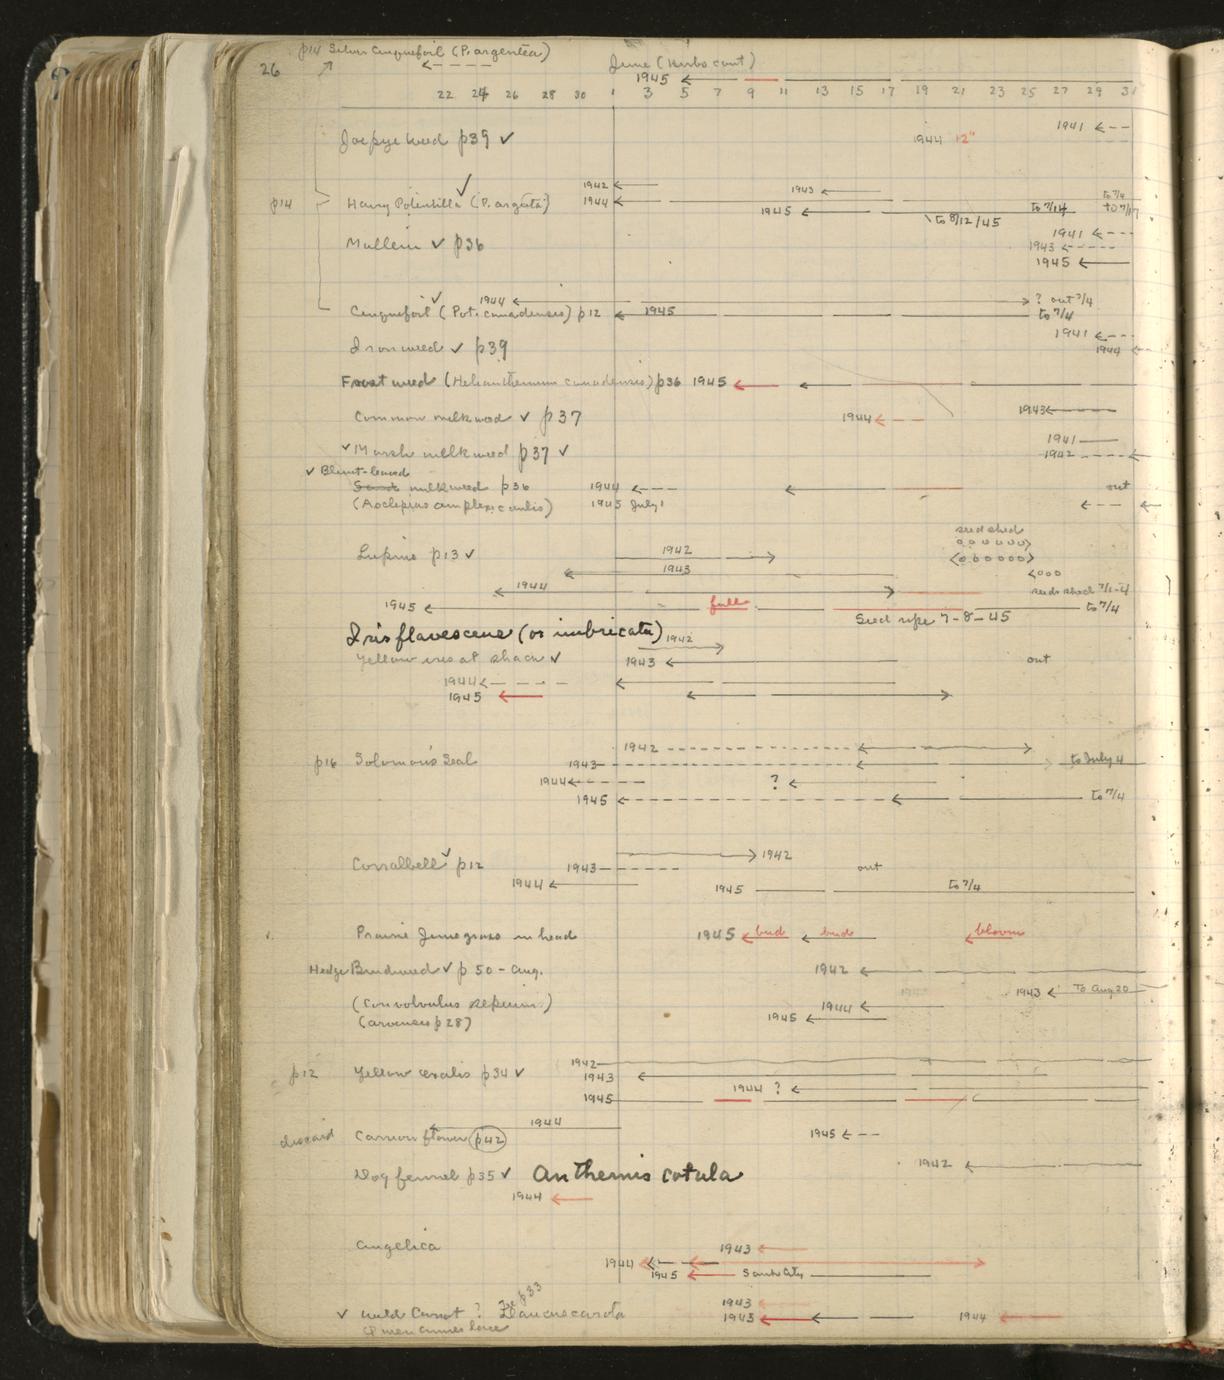 p14 Silver Cinquefoil (P. argentea)
26 June (Herbs cont)
1945
22 24 26 28 30 1 3 5 7 9 11 13 15 17 19 21 23 25 27 29 31
1941
Joe pye weed p39 ✓ 1944 12"
1942 1943 to 7/4
p14 Hairy Potentilla ✓ (P. arguta) 1944 to 7/14 to 7/17
1945 to 8/12/45
1941
Mullein ✓ p36 1943
1945
1944 ? out 7/4
Cinquefoil ✓ (Pot. canadensis) p12 1945 to 7/4
1941
Iron weed ✓ p39 1944
Frost weed (Helianthemum canadensis) p36 1945
Common milkweed ✓ p37 1944 1943
1941
✓ Marsh milkweed p37 ✓ 1942
✓ Blunt-leaved
Sand milkweed p36 1944 out
(Asclepias amplexicaulis) 1945 July 1
seed shed
Lupine p13 ✓ 1942
1943
1944 seeds shed 7/1-4
1945 full to 7/4
Seed ripe 7-8-45
Iris flavescens (or imbricata) 1942
Yellow iris at shack ✓ 1943 out
1944
1945
1942
p16 Solomon's Seal 1943 to July 4
1944 ?
1945 to 7/4
1942
Corralbell ✓ p12 1943 out
1944 1945 to 7/4
Prairie Junegrass in head 1945 bud bud bloom
Hedge Bindweed ✓ p 50 - Aug. 1942
1943 To Aug 20
(Convolvulus sepium) 1944
(arvensis p28) 1945
1942
p12 Yellow oxalis p34 ✓ 1943
1944 ?
1945
1944
discard Carrion flower p42 1945
Dog fennel p35 ✓ Anthemis cotula 1942
1944
Angelica 1943
1944
1945 Sauk City
p33
✓ Wild Carrot ? Daucus carota 1943
1945 1944
Queen Annes lace